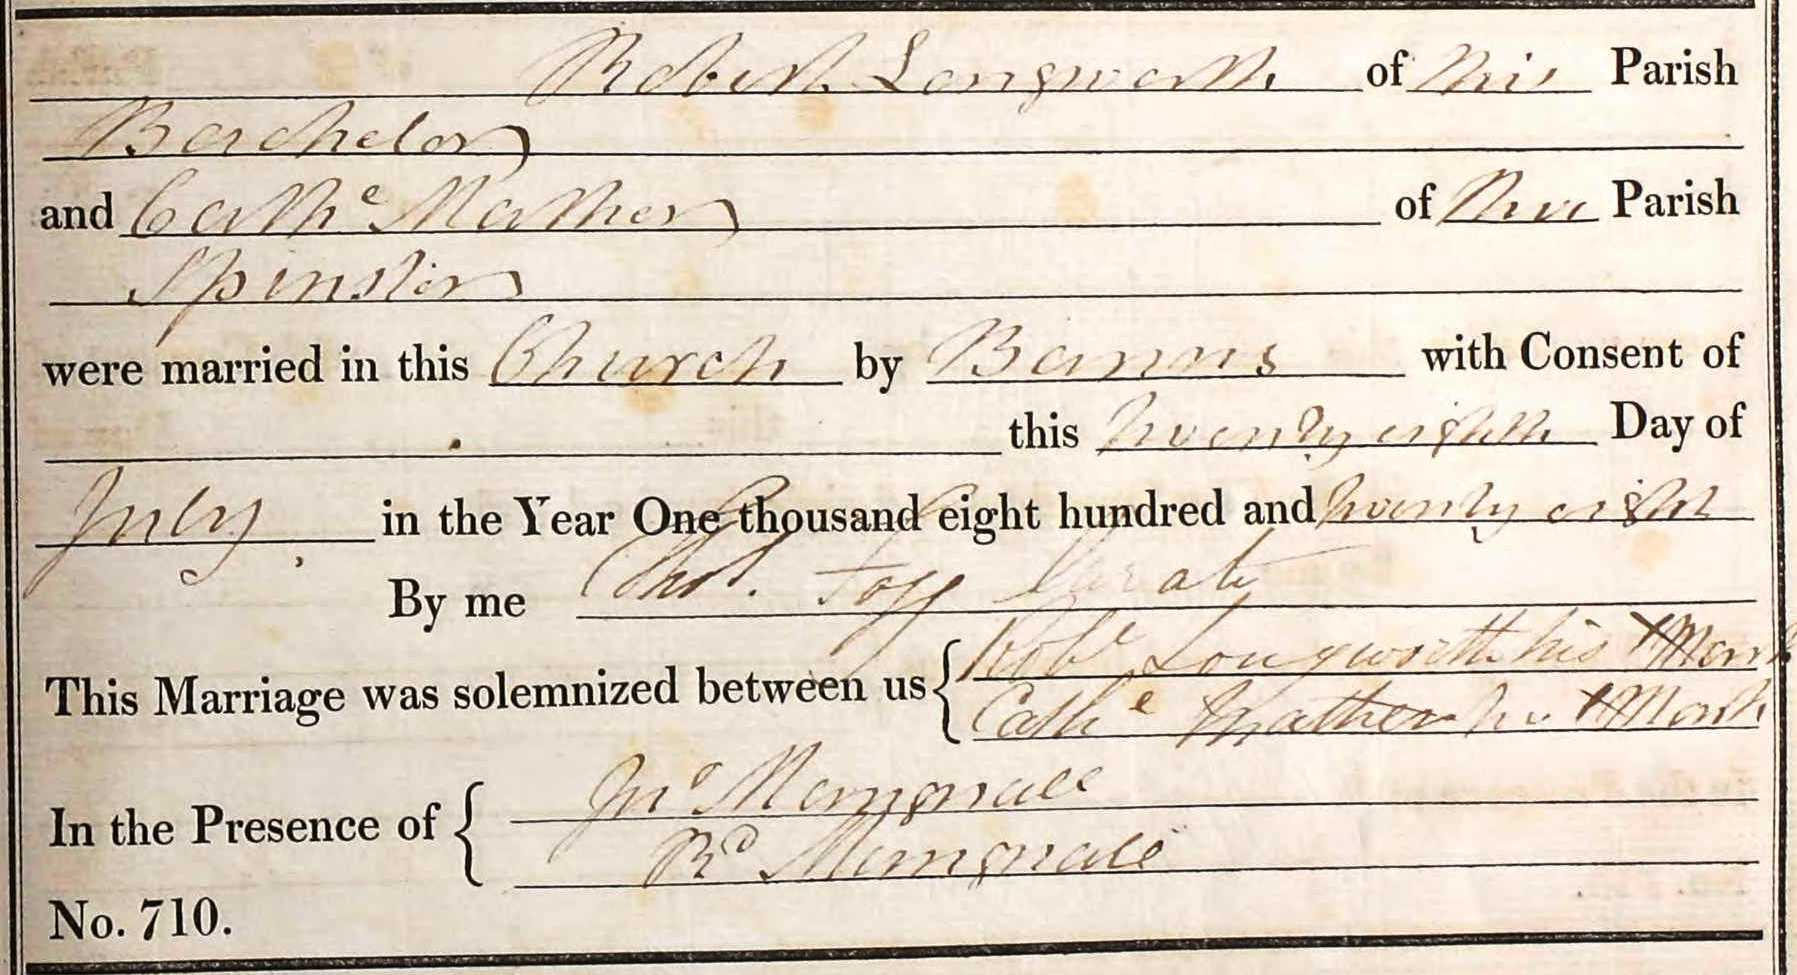 Robert Longworth of this Parish
Bachelor
and Cathe Mather of this Parish
Spinster
were married in this Church by Banns with Consent of
this twenty eighth Day of
July in the Year One thousand eight hundred and twenty eight
By me Thos. Foxx Curate
This Marriage was solemnized between us { Robt Longworth his X Mark
Cathe Mather her X Mark
In the Presence of { Jno
Rd
No. 710.